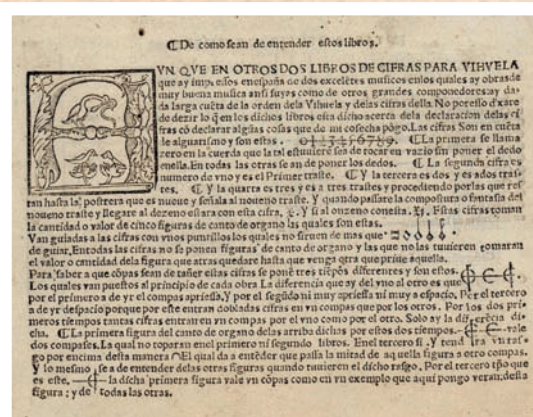 ☾De como ſean de entender eſtos libros.
AVN QVE EN OTROS DOS LIBROS DE CIFRAS PARA VIHVELA
que ay impreſſos en eſpaña de dos excelẽtes muſicos en los quales ay obras de
muy buena muſica anſi ſuyas como de otros grandes componedores: ay da
da larga cuẽta de la orden dela Vihuela y delas cifras della. No por eſſo dexare
de dezir lo q̃ en los dichos libros eſta dicho acerca dela declaracion delas ci
fras cõ declarar algũas coſas que de mi coſecha põgo. Las cifras Son en cuẽta
le alguariſmo y ſon eſtas . 0 1 2 3 4 5 6 7 8 9. ☾La primera ſe llama
zero en la cuerda que la tal eſtuuiere ſea de tocar en vazio ſin poner el dedo
enella. En todas las otras ſe an de poner los dedos. ☾La ſegunda cifra es
numero de vno y es el Primer traſte. ☾Y la tercera es dos y es a dos traſ-
tes. ☾Y la quarta es tres y es a tres traſtes y procediendo por las que reſ
tan haſta la poſtrera que es nueue y ſeñala al noueno traſte. Y quando paſſare la compoſtura o fantaſia del
noueno traſte y llegare al dezeno eſtara con eſta cifra, X. Y ſi al onzeno con eſta. Xj. Eſtas cifras toman
la cantidad o valor de cinco figuras de canto de organo las quales ſon eſtas.
Van guiadas a las cifras con vnos puntillos los quales no ſiruen de mas que
de guiar, En todas las cifras no ſe ponen figuras de canto de organo y las que no las tuuieren tomaran
el valor o cantidad dela figura que atras quedare haſta que venga otra que priue aquella.
Para ſaber a que cõpas ſean de tañer eſtas cifras ſe ponẽ tres tiẽpos diferentes y ſon eſtos.
Los quales van pueſtos al principio de cada obra La diferencia que ay del vno al otro es que
por el primero a de yr el compas aprieſſa, Y por el ſegũdo ni muy aprieſſa ni muy a eſpacio, Por el tercero
a de yr deſpacio porque por eſte entran dobladas cifras en vn compas que por los otros. Por los dos pri-
meros tiempos tantas cifras entran en vn compas por el vno como por el otro. Solo ay la diferẽcia di
cha. ☾La primera figura del canto de organo delas arriba dichas por eſtos dos tiempos. vale
dos compaſes. La qual no toparan en el primero ni ſegundo libros. En el tercero ſi. Y tendra vn raſ-
go por encima deſta manera ⌒ El qual da a entẽder que paſſa la mitad de aquella figura a otro compas.
Y lo meſmo ſe a de entender delas otras figuras quando tuuieren el dicho raſgo. Por el tercero tp̃o que
es eſte, la dicha primera figura vale vn cõpas como en vn exemplo que aqui pongo veran: deſta
figura: y de todas las otras.